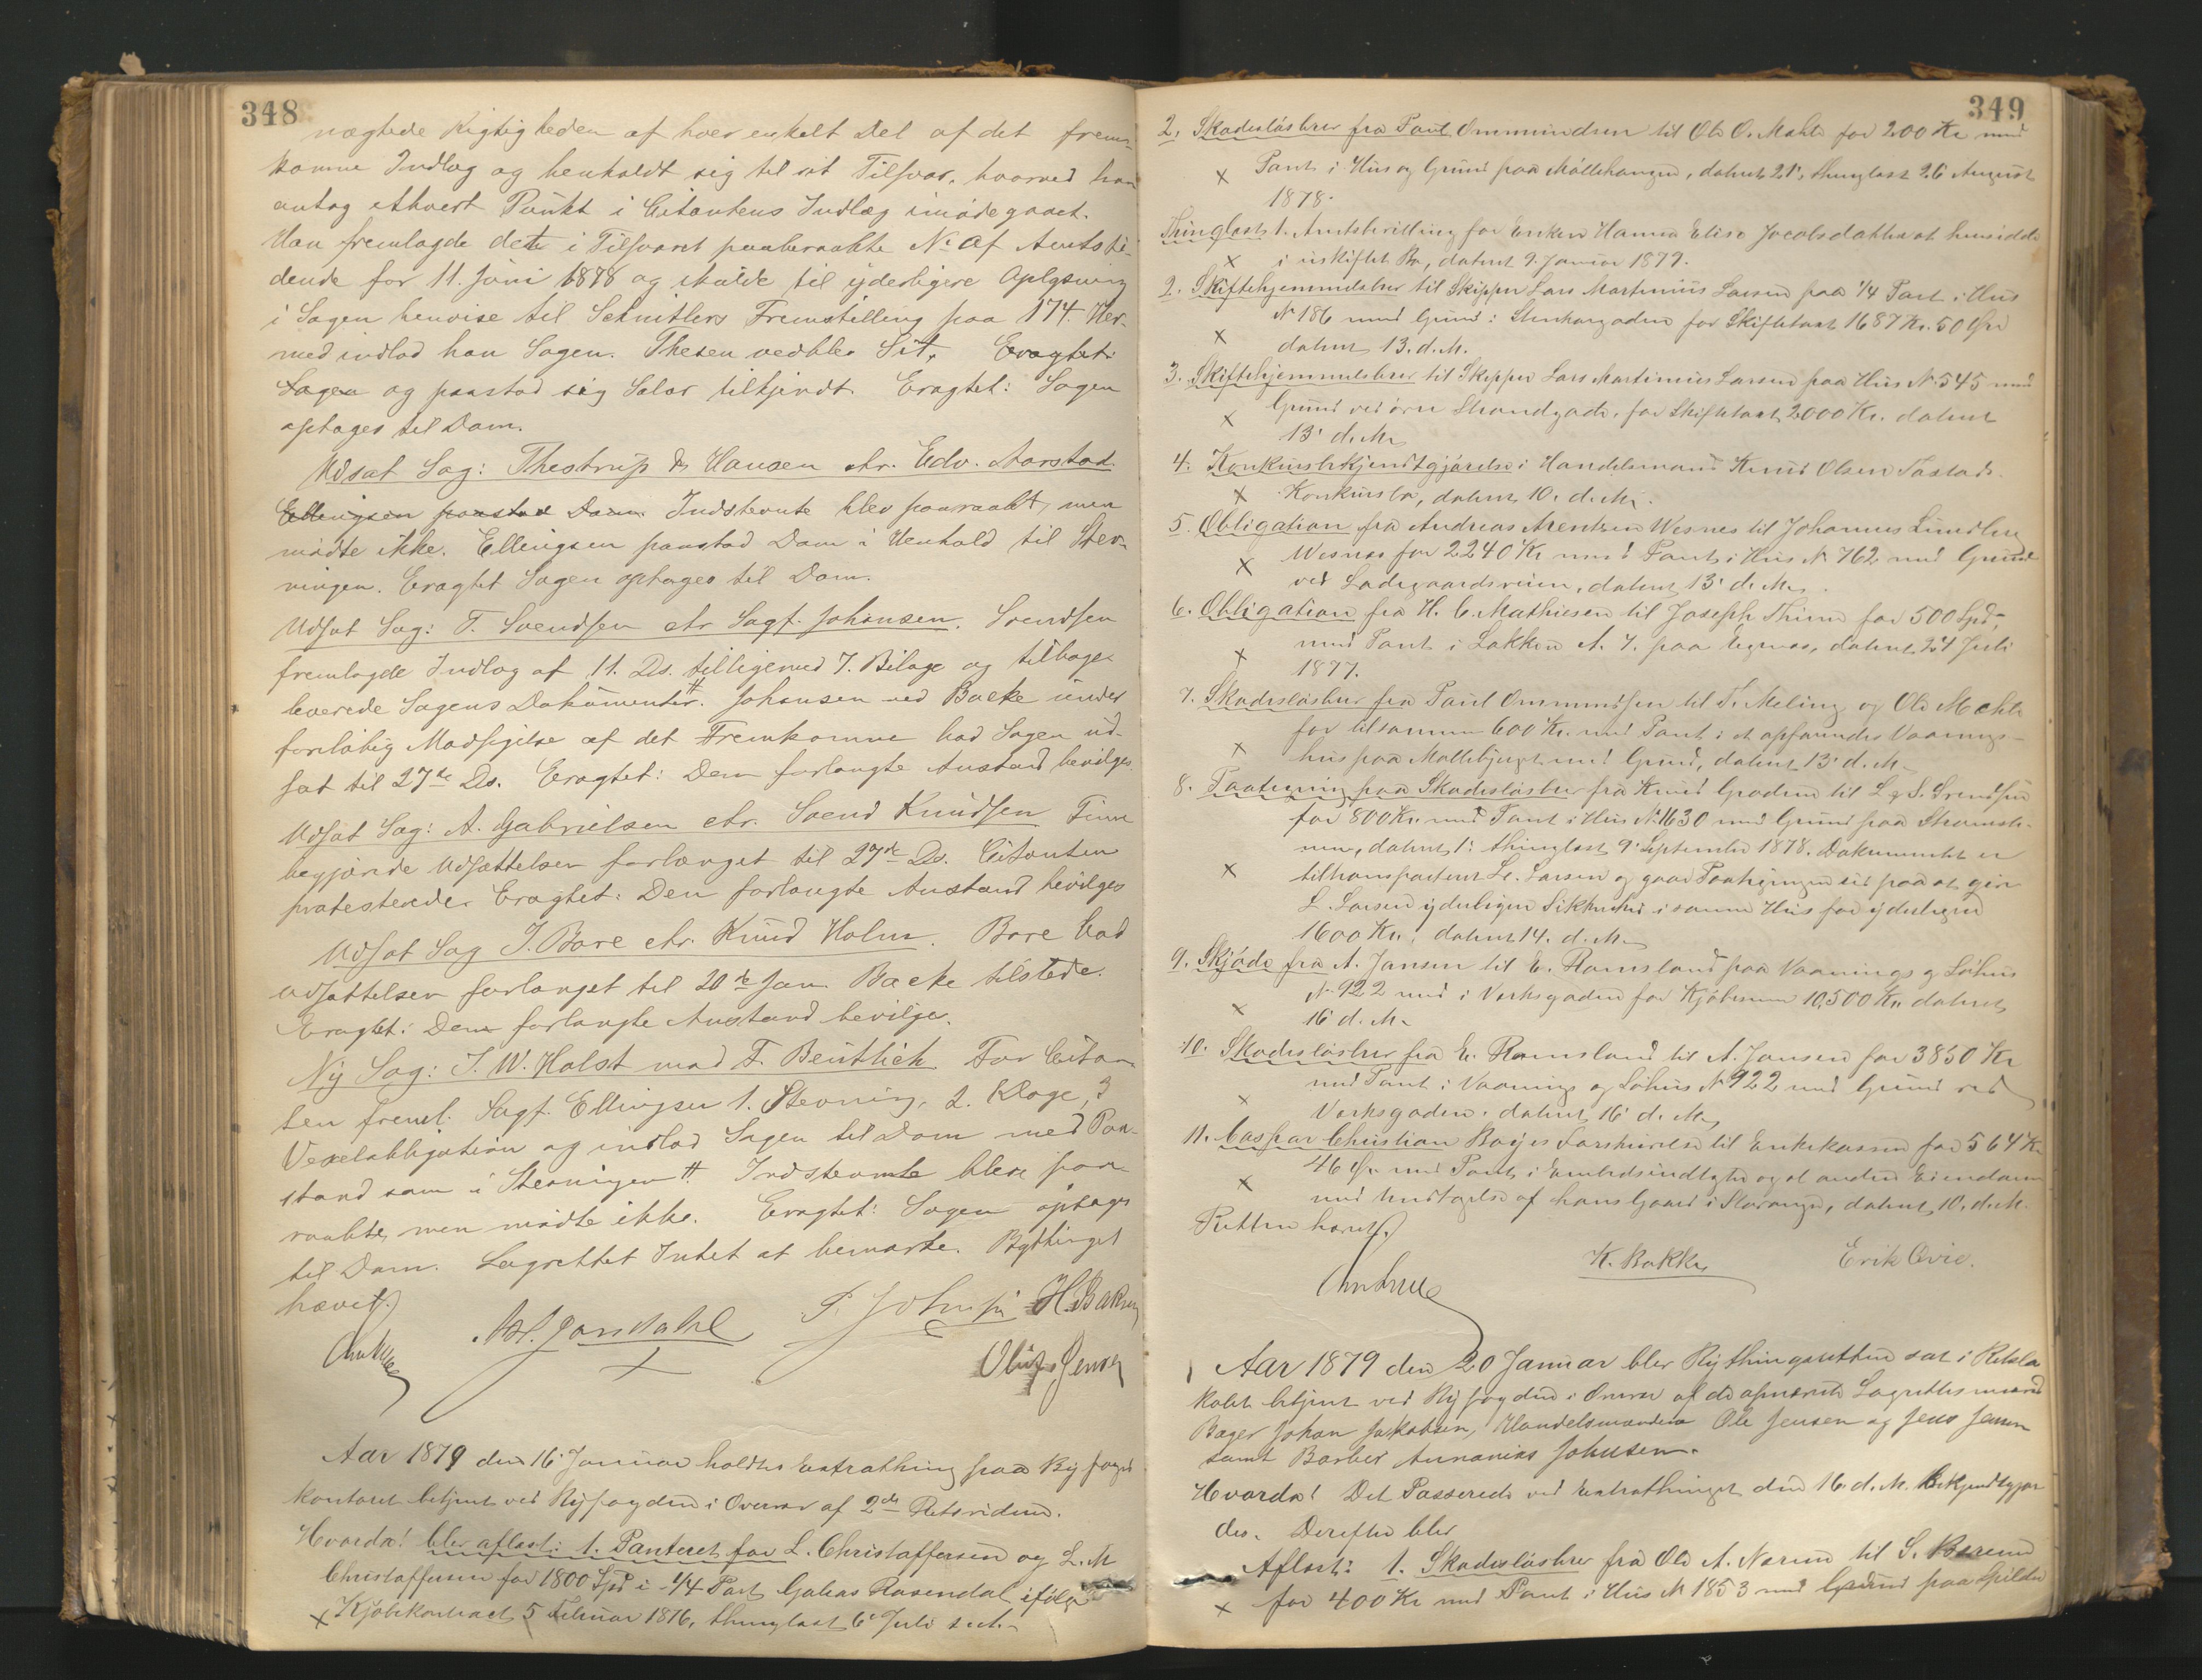 348
nægtede Rigtigheden af hver enkelt Del af det frem-
komne Indlæg og henholdt sig til sit Tilsvar, hvorved han
antog ethvert Punkt i Citantens Indlæg imødegaaet.
Han fremlagde dette i Tilsvaret paaberaabte No af Amtsti-
dende for 11. Juni 1878 og skulde til yderligere Oplysning
i Sagen henvise til Schnitlers Fremstilling paa 174. Her-
med indlod han Sagen. Thesen vedblev Sit. Eragtet:
Sagen og paastod sig Salær tilkjendt. Eragtet: Sagen
optages til Dom.
Udsat Sag: Thestrup & Hansen ctr. Edv. Aarstad
Ellingsen paastod Dom. Indstevnte blev paaraabt, men
mødte ikke. Ellingsen paastod Dom i Henhold til Stev-
ningen. Eragtet Sagen optages til Dom.
Udsat Sag: T. Svendsen ctr Sagf. Johansen. Svendsen
fremlagde Indlæg af 11. Ds. tilligemed 7. Bilage og tilbage-
leverede Sagens Dokumenter. Johansen ved Backe under
foreløbig Modsigelse af det Fremkomne bad Sagen ud-
sat til 27de Ds. Eragtet: Den forlangte Anstand bevilges.
Udsat Sag: A. Gabrielsen ctr. Svend Knudsen Finn
begjærede Udsættelsen forlænget til 27de Ds. Citanten
protesterede. Eragtet: Den forlangte Anstand bevilges
Udsat Sag J. Bore ctr. Knud Holm. Bore bad
Udsættelsen forlænget til 20de Jan Backe tilstede.
Eragtet: Den forlangte Anstand bevilges.
Ny Sag: J. W. Holst mod F. Beutlich For Citan-
ten freml. Sagf. Ellingsen 1. Stevning, 2. Klage, 3
Vexelobligation og indlod Sagen til Dom med Paa-
stand som i Stevningen Indstevnte bleve paa-
raabte, men mødte ikke. Eragtet: Sagen optages
til Dom. Lagrettet Intet at bemærke. Bythinget
hævet.
H. Bakken
Aar 1879 den 16 Januar holdtes Extrathing paa Byfoged
kontoret betjent ved Byfogden i Overvær af 2de Retsvidner.
Hvorda! blev aflæst: 1. Panteret for L. Christoffersen og L. M
Christoffersen for 1800 Spd i 1/4 Part Galeas Rosendal ifølge
x Kjøbekontract 5 Februar 1876, thinglæst 6 Juli s. A.
349
2. Skadesløsbrev fra Paul Ommundsen til Ole O. Mæhle for 200 Kr med
x Pant i Hus og Grund paa Møllehaugen, dateret 21, thinglæst 26 August
1878.
Thinglæst 1. Amtsbevilling for Enken Hanna Elise Jacobsdatter at hensidde
x i uskiftet Bo, dateret 9. Januar 1879.
2. Skiftehjemmelsbrev til Skipper Lars Martinius Larsen paa 1/4 Part i Hus
No 186 med Grund i Stenkargaden for Skiftetaxt 1687 Kr. 50 Øre
x dateret 13. d. M.
3. Skiftehjemmelsbrev til Skipper Lars Martinius Larsen paa Hus No 545 med
x Grund ved øvre Strandgade, for Skiftetaxt 2000 Kr. dateret
13' d. M.
4. Konkursbekjendtgjørelse i Handelsmand Knud Olsen Tastads
x Konkursbo, dateret 10. d. M.
5. Obligation fra Andreas Arentzen Wesnes til Johannes Lindberg
x Wesnes for 2240 Kr med Pant i Hus No 762 med Grund
ved Ladegaardsveien, dateret 13' d. M.
6. Obligation fra H. C. Mathiesen til Joseph Thime for 500 Spd,
x med Pant i Løkken No 7. paa Egenes, dateret 24 Juli
1877.
7. Skadesløsbrev fra Paul Ommundsen til T. Meling og Ole Mæhle
for tilsammen 600 Kr. med Pant i et opførendes Vaanings-
x hus paa Møllebjerget med Grund, dateret 13' d. M.
8. Paategning paa Skadesløsbrev fra Knud Grødem til L & S. Svendsen
for 800 Kr. med Pant i Hus No 1630 med Grund paa Strømste-
nen, dateret 1. thinglæst 9. September 1878. Dokumentet er
x tiltransporteret L. Larsen og gaar Paategningen ud paa at give
L. Larsen yderligere Sikkerhed i samme Hus for yderligere
1600 Kr., dateret 14. d. M.
9. Skjøde fra A. Jansen til E. Ramsland paa Vaanings og Søhus
No 922 med i Verksgaden for Kjøbesum 10,500 Kr. dateret
x 16 d. M.
10. Skadesløsbrev fra E. Ramsland til A. Jansen for 3850 Kr
med Pant i Vaanings og Søhus No 922 med Grund ved
x Verksgaden. dateret 16' d. M.
11. Caspar Christian Boyes Forskrivelse til Enkekassen for 564 Kr
46 Øre med Pant i Embedsindtægter og al anden Eiendom
x med Undtagelse af hans Gaard i Stavanger, dateret 10. d. M.
Retten hævet.
K. Bakke Erik Qvie.
Aar 1879 den 20 Januar blev Bythingsretten sat i Retslo-
kalet betjent ved Byfogden i Overvær af de opnævnte Lagrettesmænd
Bager Johan Jakobsen, Handelsmændene Ole Jensen og Jens Jensen
samt Barber Annanias Johnsen.
Hvorda! Det Passerede ved Extrathinget den 16. d. M. Bekjendtgjor
des. Derefter blev
Aflæst: 1. Skadesløsbrev fra Ole A. Nærum til S. Berentsen
x for 400 Kr med Pant i Hus No 1853 med Grund paa Spilder